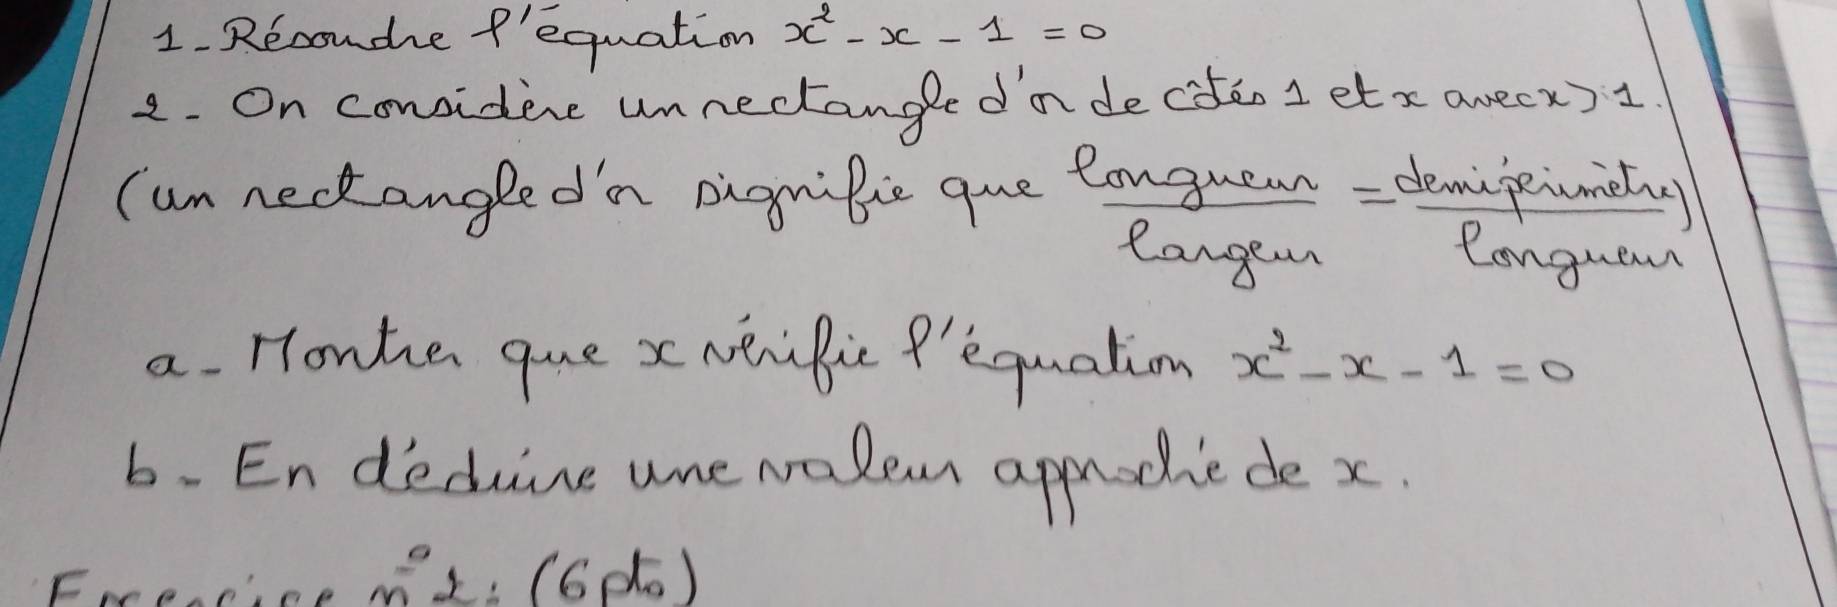 1- Résoudre l'équation x² - x - 1 = 0
2- On considère un rectangle d'or de côtés 1 et x avec x > 1.
(un rectangle d'or signifie que longueur/largeur = demipérimètre/longueur)
a- Montrer que x vérifie l'équation x² - x - 1 = 0
b- En déduire une valeur approchée de x.
Exercice n° 2: (6 pts)